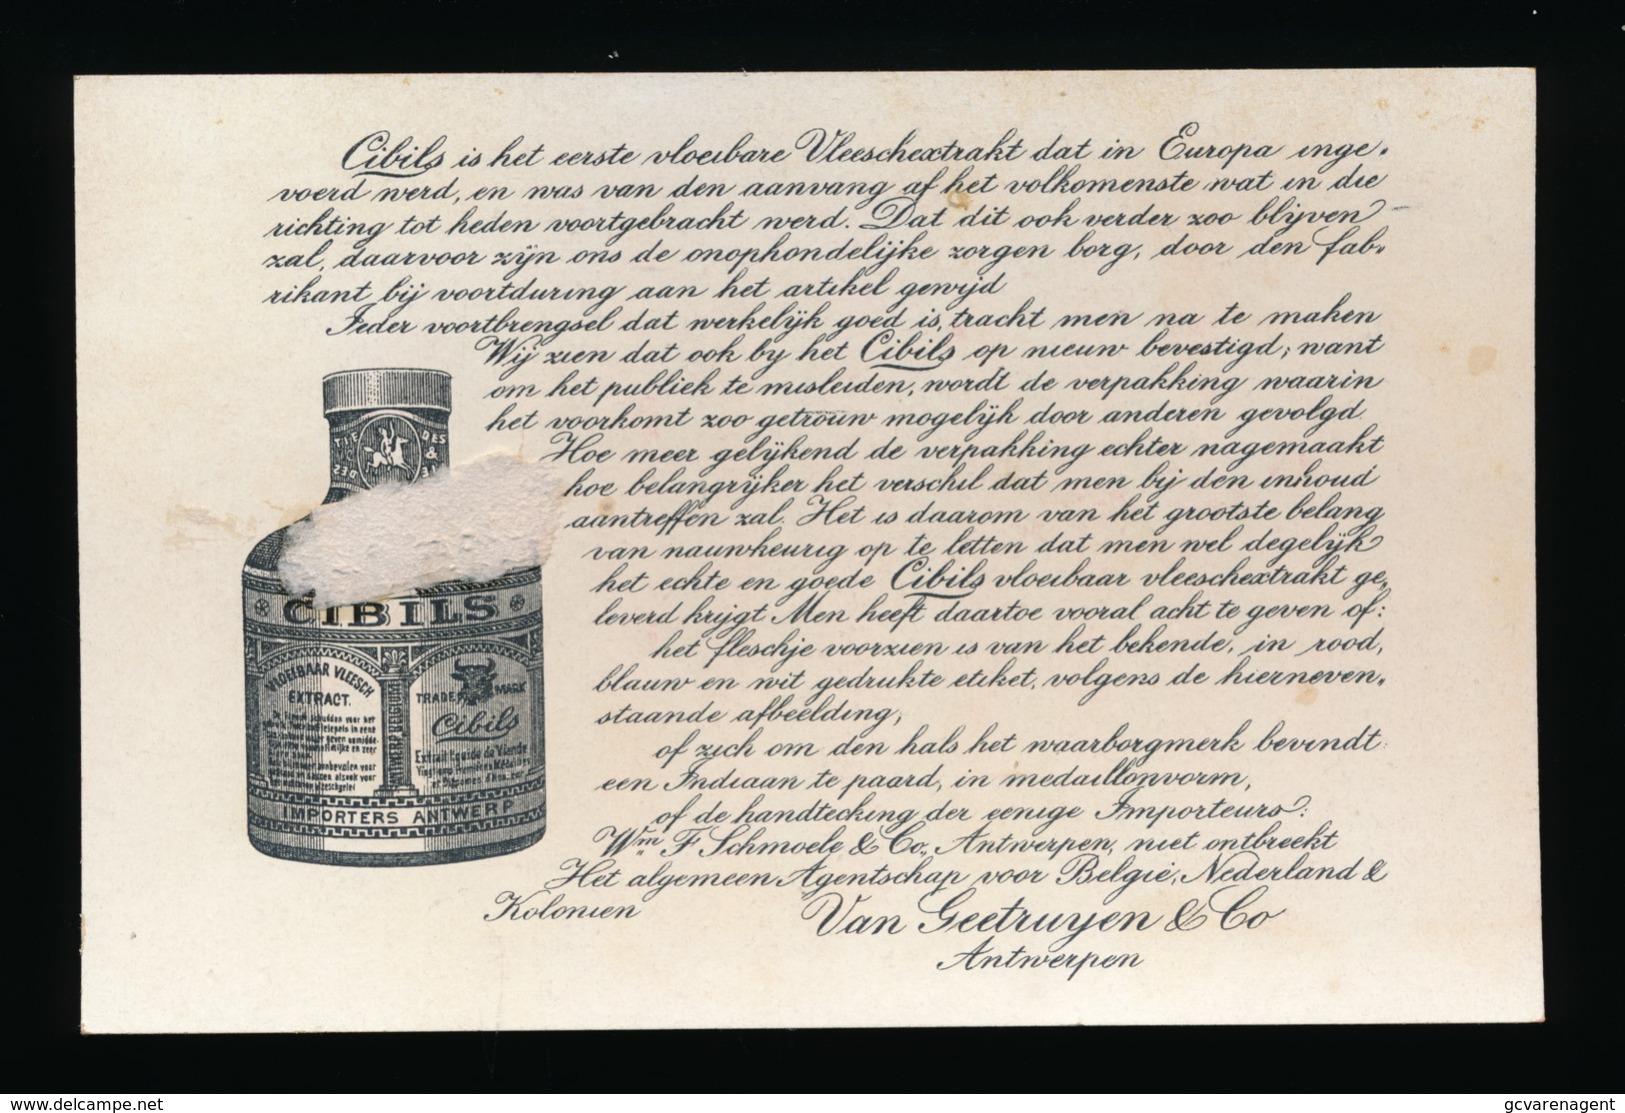 Cibils is het eerste vloeibare Vleeschextrakt dat in Europa inge-
voerd werd, en was van den aanvang af het volkomenste wat in die
richting tot heden voortgebracht werd. Dat dit ook verder zoo blijven
zal, daarvoor zijn ons de onophondelijke zorgen borg, door den fab-
rikant bij voortduring aan het artikel gewijd
Ieder voortbrengsel dat werkelijk goed is, tracht men na te maken
Wij zien dat ook by het Cibils op nieuw bevestigd; want
om het publiek te misleiden, wordt de verpakking waarin
het voorkomt zoo getrouw mogelijk door anderen gevolgd.
Hoe meer gelijkend de verpakking echter nagemaakt
hoe belangrijker het verschil dat men bij den inhoud
aantreffen zal. Het is daarom van het grootste belang
van nauwkeurig op te letten dat men wel degelijk
het echte en goede Cibils vloeibaar vleeschextrakt ge-
leverd krijgt. Men heeft daartoe vooral acht te geven of:
het fleschje voorzien is van het bekende, in rood,
blauw en wit gedrukte etiket, volgens de hierneven-
staande afbeelding;
of zich om den hals het waarborgmerk bevindt:
een Indiaan te paard, in medaillonvorm,
of de handtecking der eenige Importeurs:
Wm. F. Schmoele & Co., Antwerpen, niet ontbreekt
Het algemeen Agentschap voor België, Nederland &
Kolonien
Van Geetruyen & Co
Antwerpen
TIE DES
& 
CIBILS
VLOEIBAAR VLEESCH
EXTRACT.
ANTWERP BELGIUM
TRADE MARK
Cibils
Extrait Liquide de Viande
IMPORTERS ANTWERP
www.delcampe.net
gcvarenagent